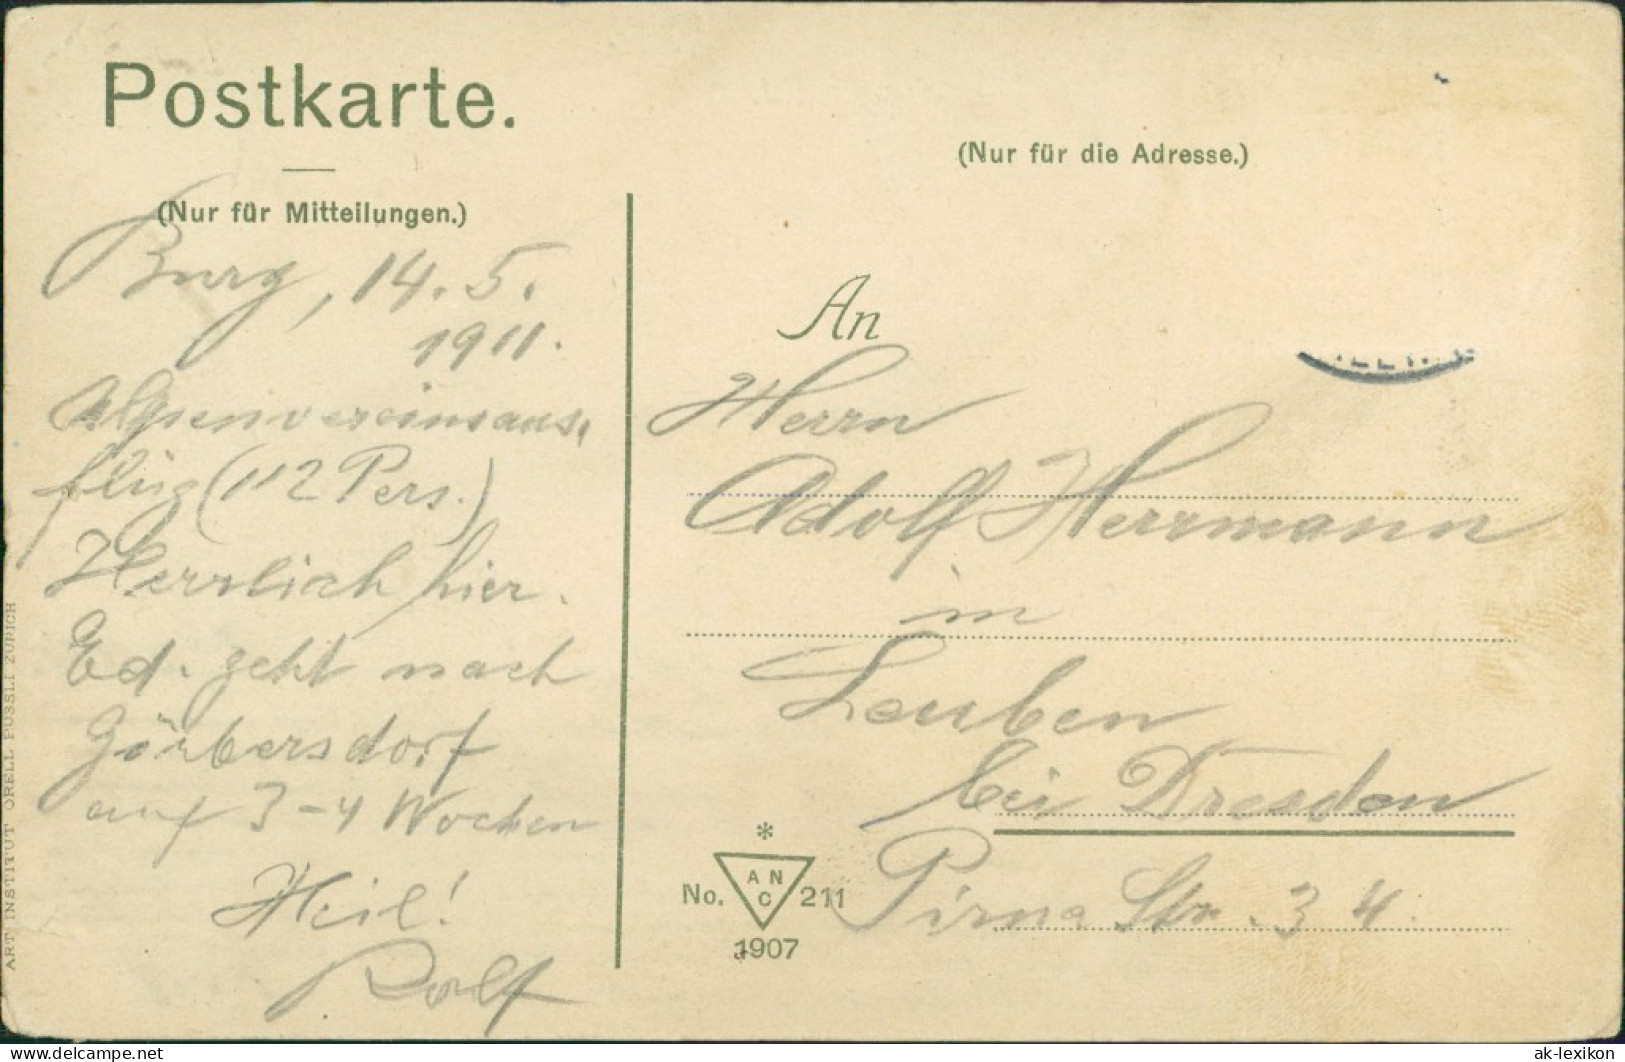 Postkarte.
(Nur für Mitteilungen.)
(Nur für die Adresse.)
Burg, 14. 5.
1911.
Alpenvereinsaus-
flug (112 Pers.)
Herrlich hier.
Ed. geht nach
Görbersdorf
auf 3-4 Wochen
Heil!
Rolf
An
Herrn
Adolf Herrmann
in
Leuben
bei Dresden
Pirna Str. 34.
*
No. ANC 211
1907
ART. INSTITUT ORELL FÜSSLI ZÜRICH
delcampe.net
ak-lexikon